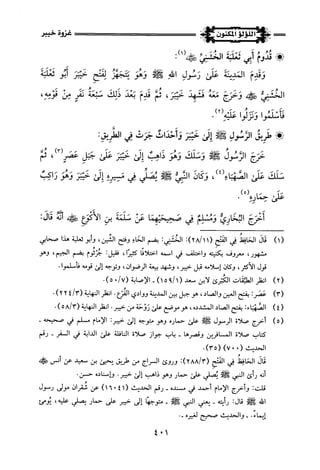 اللؤلؤ المكنون
غزوة خيبر
قُدُومُ أَبِي ثَعْلَبَةَ الخُشَنِيِّ ﷺ(١):
وَقَدِمَ المَدِينَةَ عَلَى رَسُولِ اللهِ ﷺ وَهُوَ يَتَجَهَّزُ لِفَتْحِ خَيْبَرَ أَبُو ثَعْلَبَةَ
الخُشَنِيُّ ﷺ وَخَرَجَ مَعَهُ فَشَهِدَ خَيْبَرَ، ثُمَّ قَدِمَ بَعْدَ ذَلِكَ سَبْعَةُ نَفَرٍ مِنْ قَوْمِهِ،
فَأَسْلَمُوا وَنَزَلُوا عَلَيْهِ(٢).
طَرِيقُ الرَّسُولِ ﷺ إِلَى خَيْبَرَ وَأَحْدَاثٌ جَرَتْ فِي الطَّرِيقِ:
خَرَجَ الرَّسُولُ ﷺ وَسَلَكَ وَهُوَ ذَاهِبٌ إِلَى خَيْبَرَ عَلَى جَبَلِ عَصَرٍ(٣)، ثُمَّ
سَلَكَ عَلَى الصَّهْبَاءِ(٤)، وَكَانَ النَّبِيُّ ﷺ يُصَلِّي فِي مَسِيرِهِ إِلَى خَيْبَرَ وَهُوَ رَاكِبٌ
عَلَى حِمَارِهِ(٥).
أَخْرَجَ البُخَارِيُّ وَمُسْلِمٌ فِي صَحِيحَيْهِمَا عَنْ سَلَمَةَ بنِ الأَكْوَعِ ﷺ أَنَّهُ قَالَ:
(١) قَالَ الحَافِظُ فِي الفَتْحِ (٢٨/١١): الخُشَنِي: بضم الخَاءِ وفتح الشّين، وأبو ثعلبة هذا صحابي
مشهور، معروف بكنيته واختلف في اسمه اختلافًا كثيرًا، فقيل: جُرْثُوم بضم الجيم، وهو
قول الأكثر، وكان إسلامه قبل خيبر، وشهد بيعة الرضوان، وتوجه إلى قومه فأسلموا.
(٢) انظر الطَّبَقَات الكُبْرَى لابن سعد (١٥٩/١)ـ الإصابة (٥٠/٧).
(٣) عَصَر: بفتح العين والصاد، هو جبل بين المدينة ووادي الفُرْع. انظر النهاية (٢٢٤/٣).
(٤) الصَّهْبَاء: بفتح الصاد المشدده، هو موضع على رَوْحَة من خيبر. انظر النهاية (٥٨/٣).
(٥) أخرج صلاة الرسول ﷺ على حماره وهو متوجه إلى خيبر: الإمام مسلم في صحيحه ـ
كتاب صلاة المسافرين وقصرها ـ باب جواز صلاة النافلة على الدابة في السفر ـ رقم
الحديث (٧٠٠) (٣٥).
قَالَ الحَافِظُ فِي الفَتْحِ (٢٨٨/٣): وروى السراج من طريق يحيى بن سعيد عن أنس ﷺ
أنه رأى النبي ﷺ يُصلي على حمار وهو ذاهب إلى خيبر. وإسناده حسن.
قلت: وأخرج الإمام أحمد في مسنده ـ رقم الحديث (١٦٠٤١) عن شُقران مولى رسول
الله ﷺ قال: رأيته ـ يعني النبي ﷺ ـ متوجهًا إلى خيبر على حمار يصلي عليه، يُومئ
إيماءً. ـ والحديث صحيح لغيره ـ.
٤٠١